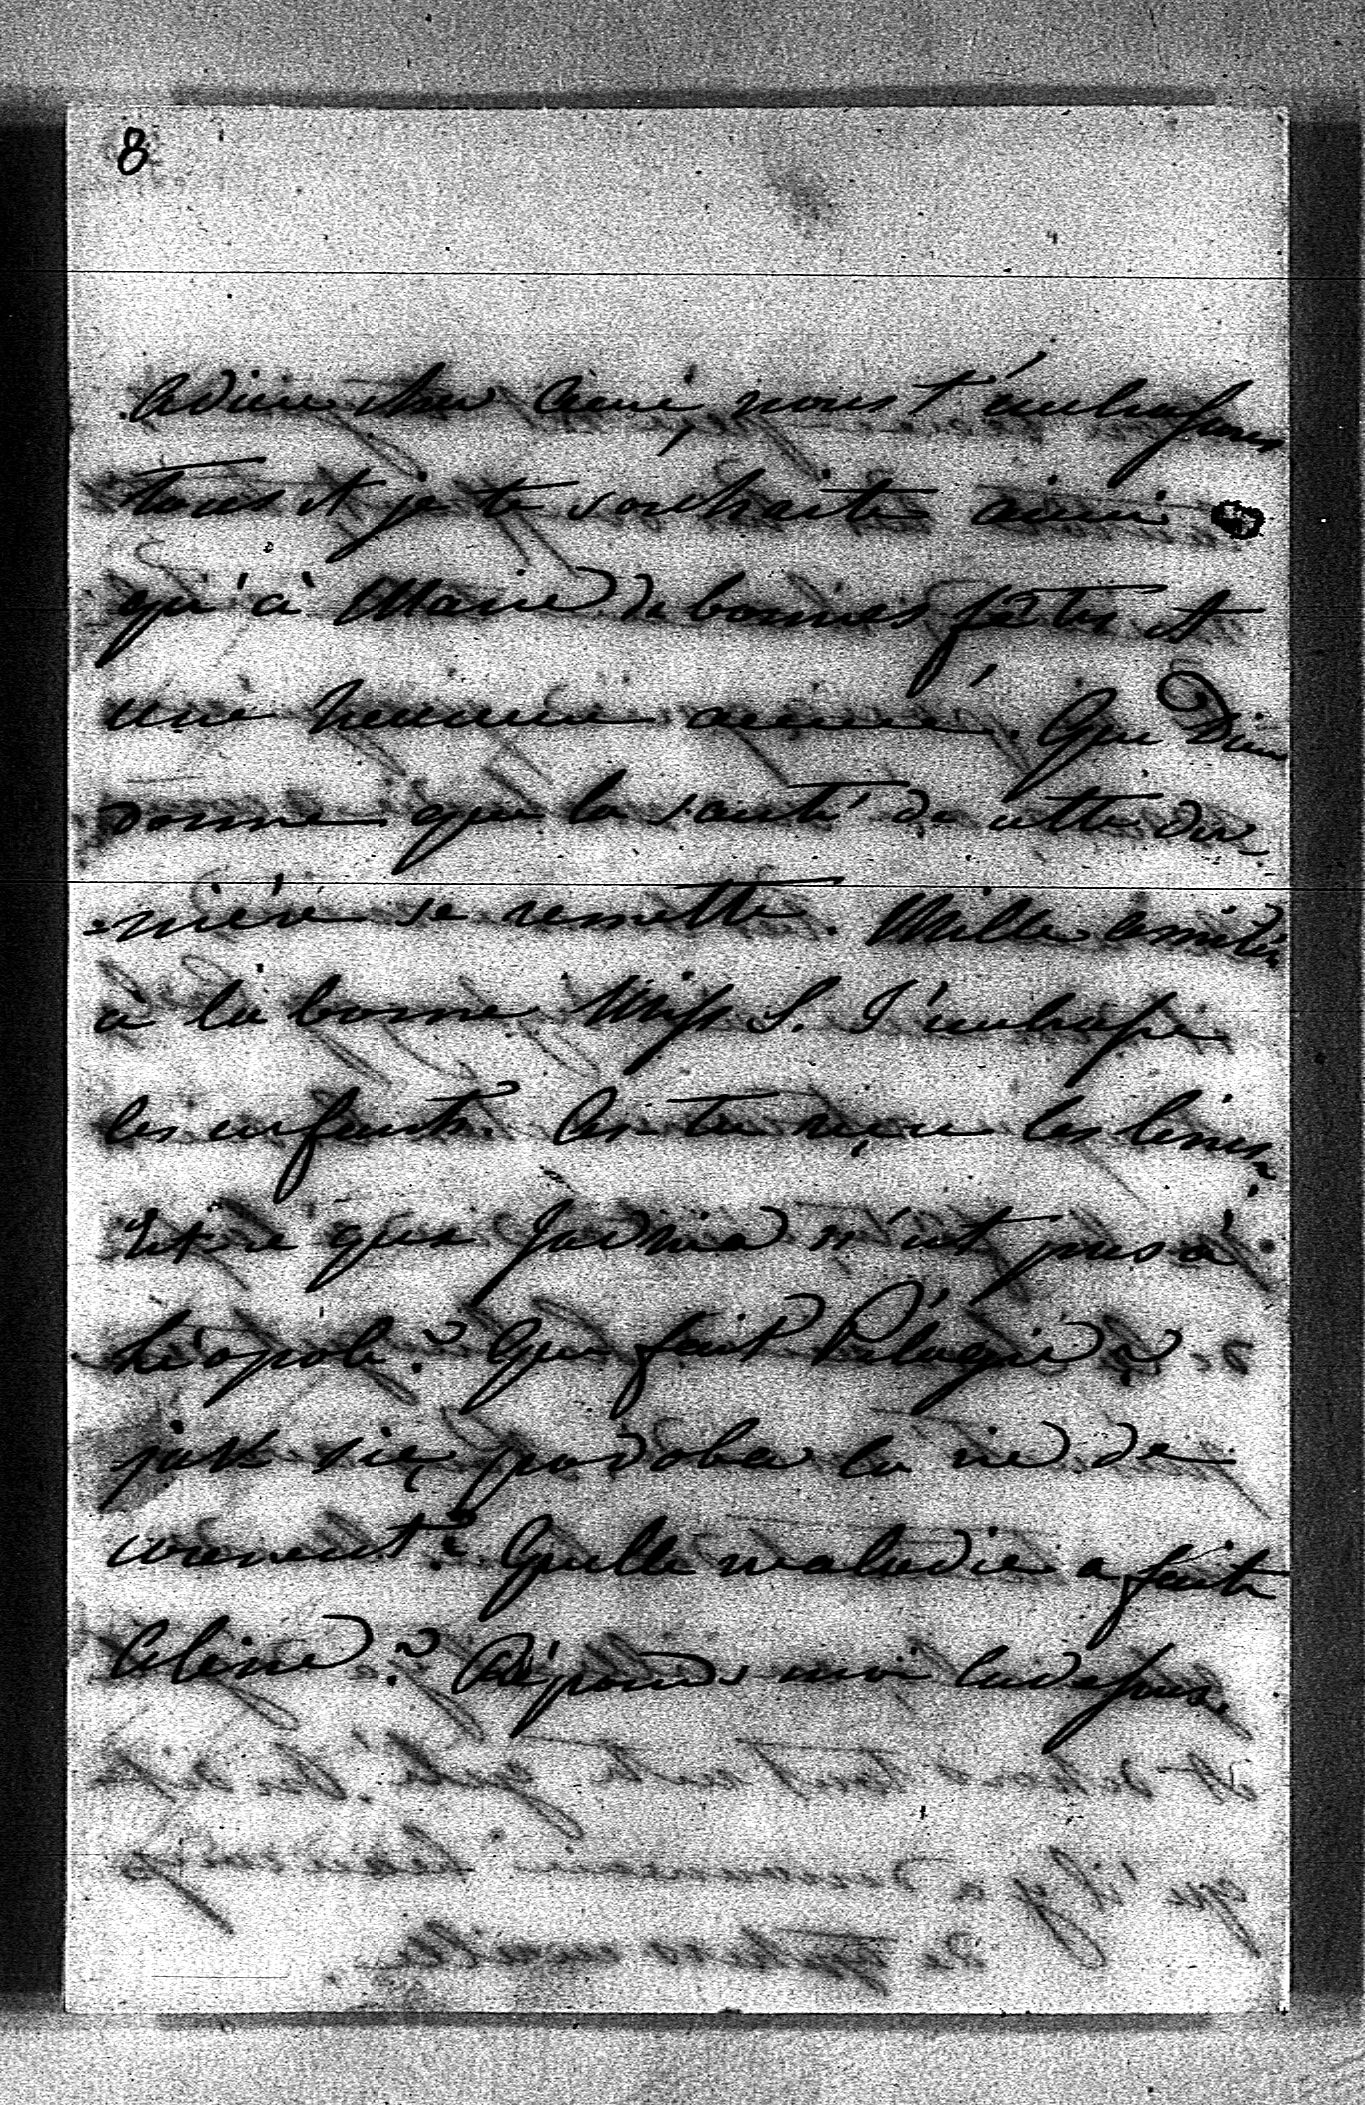 8
Adieu cher Aimé, nous t'embrassons
tous et je te souhaite ainsi
qu'à Marie de bonnes fêtes et
une heureuse année. Que Dieu
donne que la santé de cette der
=nière se remette. Mille amitiés
à la bonne Miss S. J'embrasse
les enfants. As tu reçu les livres?
Est ce que Jadwiga n'est pas à
Léopole? Que fait Pélagie?
jak się podoba la vie de
couvent? Quelle maladie a faite
Aline? Réponds moi ladessus.